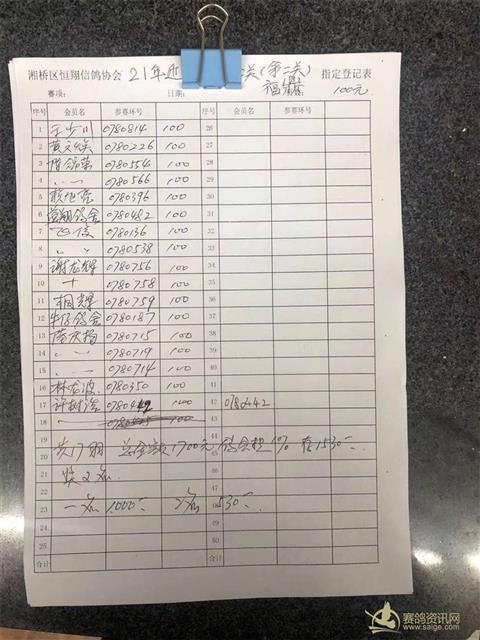 湘桥区恒翔信鸽协会 21年 关(第二关) 指定登记表
赛项: 日期: 福 100元
序号 会员名 参赛环号 序号 会员名 参赛环号
1 王少川 0780814 100 26
2 黄文焕 0780226 100 27
3 0780554 100 28
4 〃 — 0780566 100 29
5 0780396 100 30
6 翔鸽舍 0780482 100 31
7 0780136 100 32
8 〃 〃 0780538 100 33
9 谢龙辉 0780756 100 34
10 0780758 100 35
11 0780759 100 36
12 牛仔鸽舍 0780187 100 37
13 0780715 100 38
14 〃 — 0780719 100 39
15 〃 — 0780714 100 40
16 林龙波 0780350 100 41
17 许 0780442 100 42 0780442
18 43
19 共17羽 总金额1700元 鸽会扣 10% 存1530元 44
20 45
21 奖2名 46
22 47
23 一名 1000元 2名 530元 48
24 49
25 50
合计 合计
赛鸽资讯网
www.saige.com